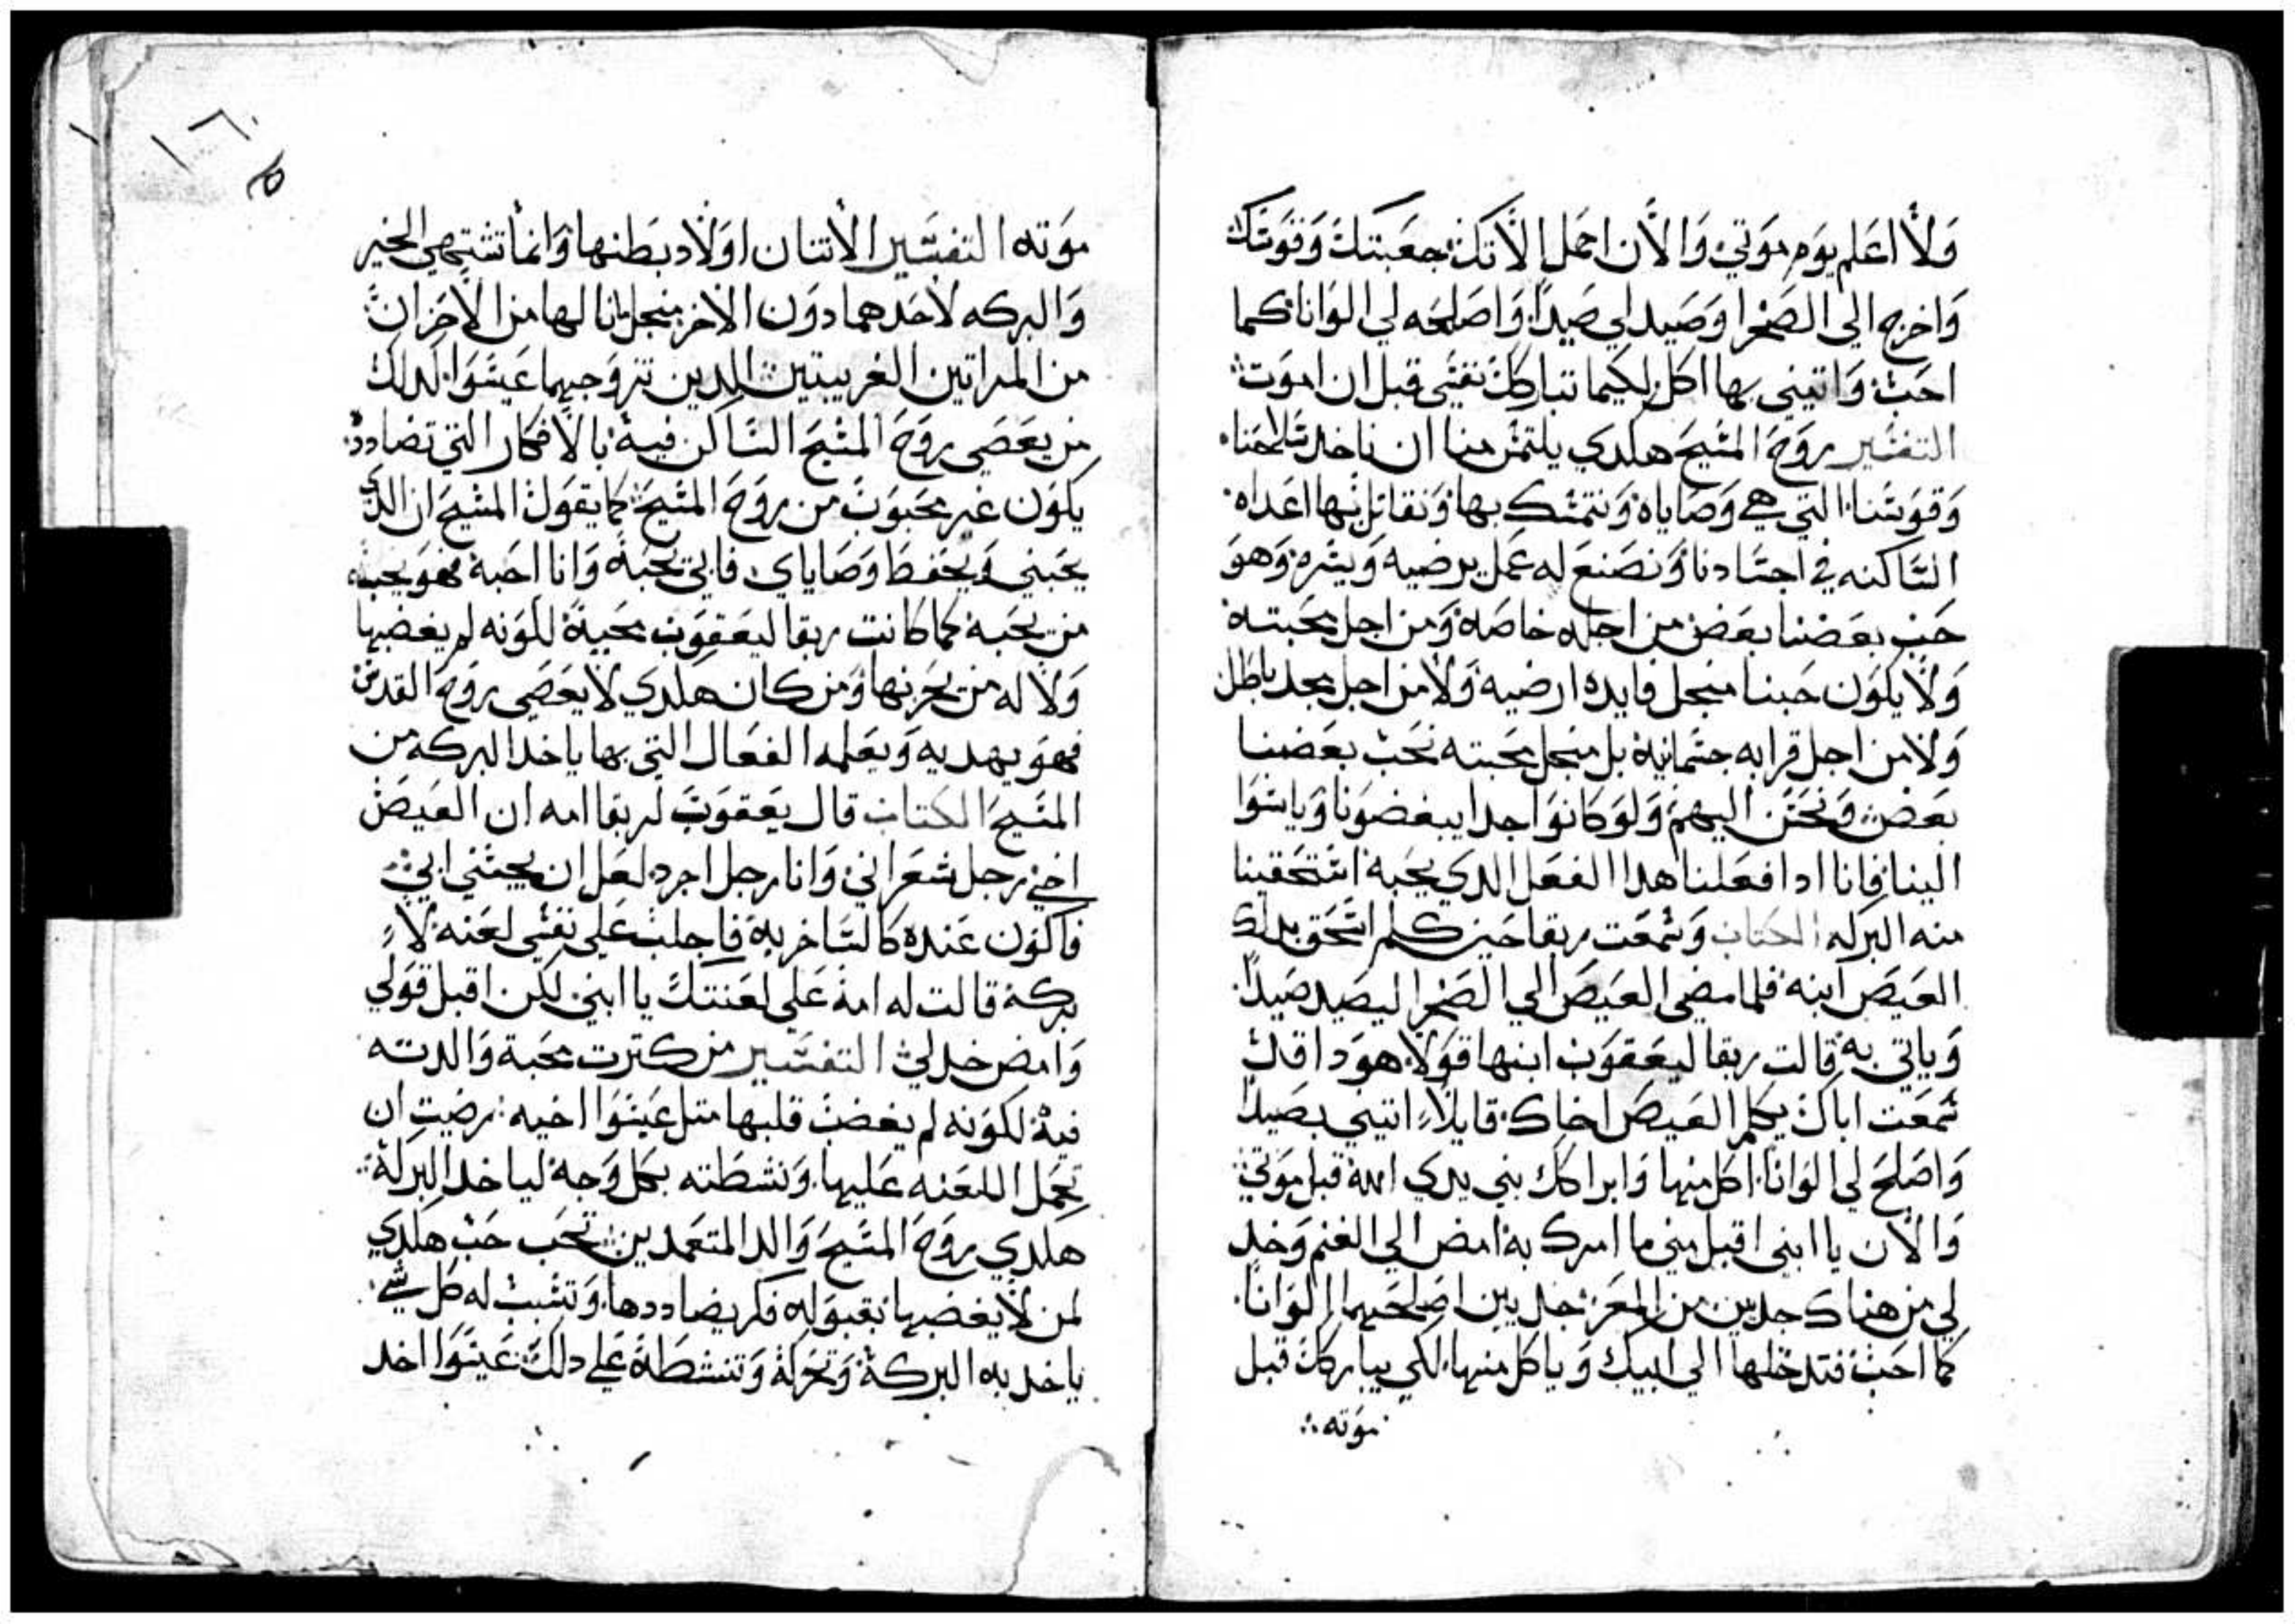 ولا اعلم يوم موتي والان احمل الاتك جعبتك وقوسك
واخرج الي الصحرا وصيد لي صيدا واصلحه لي الوانا كما
احب واتيني بها اكل لكيما تباركك نفسي قبل ان اموت
التفسير روح المسيح هكدي يلتمس منا ان ناخد سلاحنا
وقوسنا التي هي وصاياه ونتمسك بها ونقاتل بها اعداه
الساكنه في اجسادنا ونصنع له عمل يرضيه ويسره وهو
حب بعضنا بعض من اجله خاصه ومن اجل محبته
ولا يكون حبنا منجل فايده ارضيه ولا من اجل مجد باطل
ولا من اجل قرابه جسمانيه بل منجل محبته نحب بعضنا
بعض ونحسن اليهم ولو كانوا جدا يبغضونا وياسوا
الينا فانا ادا فعلنا هدا الفعل الدي يحبه استحقينا
منه البركه الكتاب وسمعت ربقا حين كلم اسحق بدلك
العيص ابنه فلما مضي العيص الي الصحرا ليصيد صيدا
وياتي به قالت ربقا ليعقوب ابنها قولا هودا قد
سمعت اباك يكلم العيص اخاك قايلا اتيني بصيدا
واصلح لي الوانا اكل منها وابراكك بني يدي الله قبل موتي
والان يا ابني اقبل مني ما امرك به امض الي الغنم وخد
لي من هناك جديين من المعز جديين اصلحهما الوانا
كما احب فتدخلها الي ابيك وياكل منها لكي يباركك قبل
موته
موته التفسير الاتنان اولاد بطنها وانما تشتهي الخير
والبركه لاحدهما دون الاخر منجل مانالها من الاحزان
من المراتين الغريبتين اللدين تزوجهما عيسوا لدلك
من يعصي روح المسيح الساكن فيه بالافكار التي تضادده
يكون غير محبوب من روح المسيح كما يقول المسيح ان الدي
يحبني ويحفظ وصاياي فابي يحبه وانا احبه فهو يحب
من يحبه كما كانت ربقا ليعقوب محبه لكونه لم يغضبها
ولا له من يحزنها ومن كان هكدي لا يعصي روح القدس
فهو يهديه ويعلمه الفعال التي بها ياخد البركه من
المسيح الكتاب قال يعقوب لربقا امه ان العيص
اخي رجل شعراني وانا رجل اجرد لعل ان يجسني ابي
فاكون عنده كالساخر به فاجلب علي نفسي لعنه لا
بركه قالت له امه علي لعنتك يا ابني لكن اقبل قولي
وامض خد لي التفسير من كترت محبة والدته
فيه لكونه لم يغضب قلبها متل عيسوا اخيه رضيت ان
تحمل اللعنه عليها ونشطته بكل وجه لياخد البركه
هكدي روح المسيح والد المتعمدين تحب حب هكدي
لمن لا يغضبها بقبوله فكر يضاددها وتسبب له كل شي
ياخد به البركه وتحركه وتنشطه علي دلك عيسوا اخد